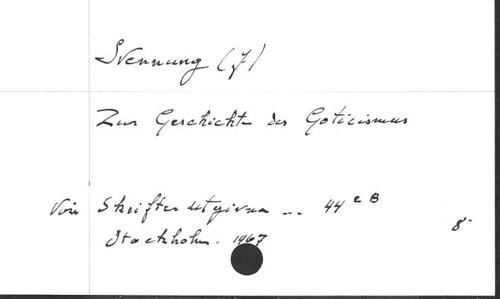 Svennung (J)
Zur Geschichte des Goticismus
Voir Skrifter utgivna ... 44 2 B
Stockholm. 1967
8°